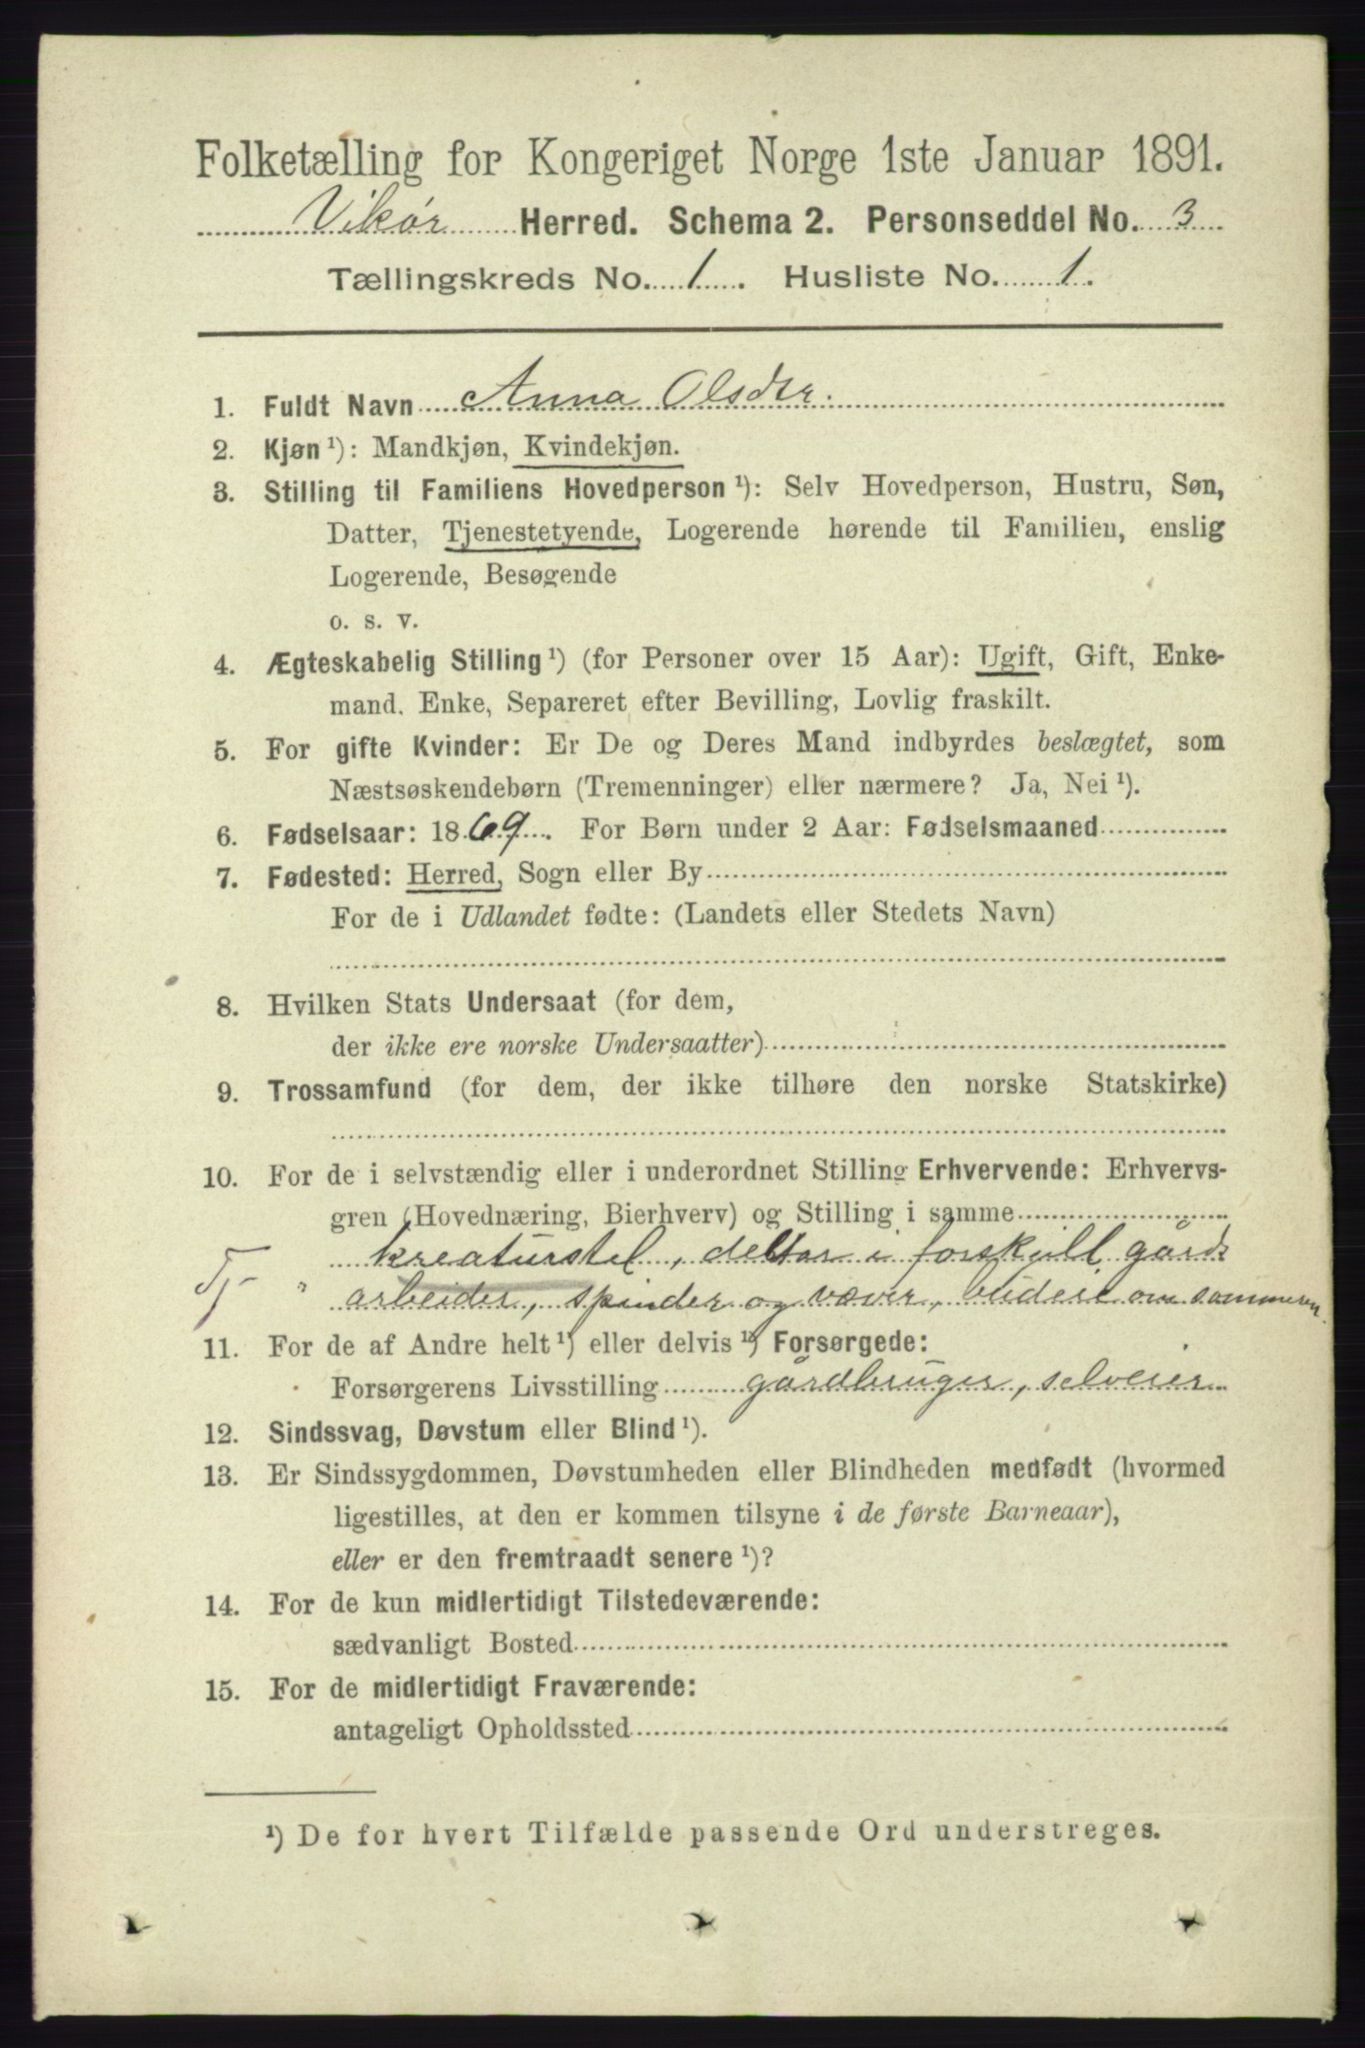 Folketælling for Kongeriget Norge 1ste Januar 1891.
Vikør Herred. Schema 2. Personseddel No. 3
Tællingskreds No. 1. Husliste No. 1.
1. Fuldt Navn Anna Olsdtr.
2. Kjøn ¹): Mandkjøn, Kvindekjøn.
3. Stilling til Familiens Hovedperson ¹): Selv Hovedperson, Hustru, Søn,
Datter, Tjenestetyende, Logerende hørende til Familien, enslig
Logerende, Besøgende
o. s. v.
4. Ægteskabelig Stilling ¹) (for Personer over 15 Aar): Ugift, Gift, Enke-
mand. Enke, Separeret efter Bevilling, Lovlig fraskilt.
5. For gifte Kvinder: Er De og Deres Mand indbyrdes beslægtet, som
Næstsøskendebørn (Tremenninger) eller nærmere? Ja, Nei ¹).
6. Fødselsaar: 1869. For Børn under 2 Aar: Fødselsmaaned
7. Fødested: Herred, Sogn eller By
For de i Udlandet fødte: (Landets eller Stedets Navn)
8. Hvilken Stats Undersaat (for dem,
der ikke ere norske Undersaatter)
9. Trossamfund (for dem, der ikke tilhøre den norske Statskirke)
10. For de i selvstændig eller i underordnet Stilling Erhvervende: Erhvervs-
gren (Hovednæring, Bierhverv) og Stilling i samme
kreaturstel, deltar i forskjell. gårds
Tj " arbeider, spinder og væver, budeie om sommeren.
11. For de af Andre helt ¹) eller delvis ¹) Forsørgede:
Forsørgerens Livsstilling gårdbruger, selveier
12. Sindssvag, Døvstum eller Blind ¹).
13. Er Sindssygdommen, Døvstumheden eller Blindheden medfødt (hvormed
ligestilles, at den er kommen tilsyne i de første Barneaar),
eller er den fremtraadt senere ¹)?
14. For de kun midlertidigt Tilstedeværende:
sædvanligt Bosted
15. For de midlertidigt Fraværende:
antageligt Opholdssted
¹) De for hvert Tilfælde passende Ord understreges.